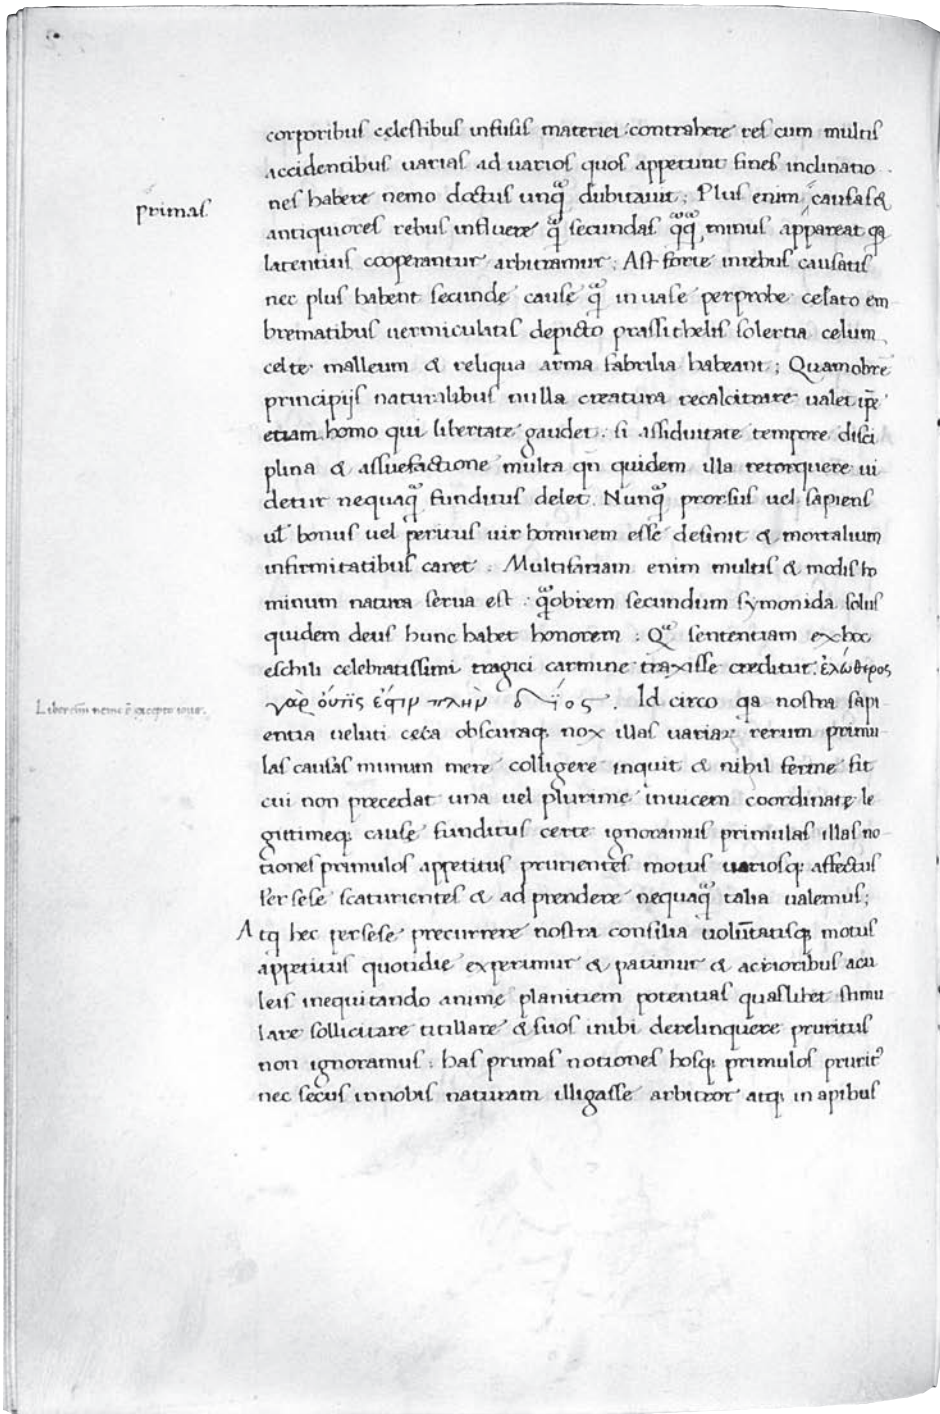 corporibus cęlestibus infusis materiei contrahere res cum multis
accidentibus uarias ad uarios quos appetunt fines inclinatio
primas
nes habere nemo doctus unq̃ dubitauit; Plus enim causas &
antiquiores rebus influere q̃ secundas q̃q̃ minus appareat qa
latentius cooperantur arbitramur; Ast forte in rebus causatis
nec plus habent secunde cause q̃ in uase perprobe celato em
brematibus uermiculatis depicto prassithelis solertia celum
celte malleum & reliqua arma fabrilia habeant; Quamobrē
principijs naturalibus nulla creatura recalcitrare ualet ip̄e
etiam homo qui libertate gaudet. si assiduitate tempore disci
plina & assuefactione multa qñ quidem illa retorquere ui
detur nequaq̃ funditus delet. Nunq̃ prorsus uel sapiens
ul̃ bonus uel peritus uir hominem esse desinit & mortalium
infirmitatibus caret. Multifariam enim multis & modis ho
minum natura serua est. q̃obrem secundum symonida solus
quidem deus hunc habet honorem: Qã sententiam ex hoc
eschili celebratissimi tragici carmine traxisse creditur. ἐλώθερος
Liber etiim nemo ē excepto ioue.
γαρ ούτις ἐςτιν πλὴν διός. Id circo qa nostra sapi
entia ueluti cęca obscuraq; nox illas uariaꝝ rerum primu
las causas minum mere colligere inquit & nihil ferme sit
cui non precedat una uel plurime inuicem coordinatę le
gittimeq; causę funditus certe ignoramus primulas illas no
tiones primulos appetitus prurientes motus uariosq; affectus
per sese scaturientes & ad prendere nequaq̃ talia ualemus;
Atq hec per sese precurrere nostra consilia uolūtatisq; motus
appetitus quotidie experimur & patimur & acrioribus acu
leis inequitando animę planitiem potentias quaslibet stimu
lare sollicitare titillare & suos inibi derelinquere pruritus
non ignoramus: has primas notiones hosq; primulos prurit⁹
nec secus in nobis naturam illigasse arbitror atq; in apibus